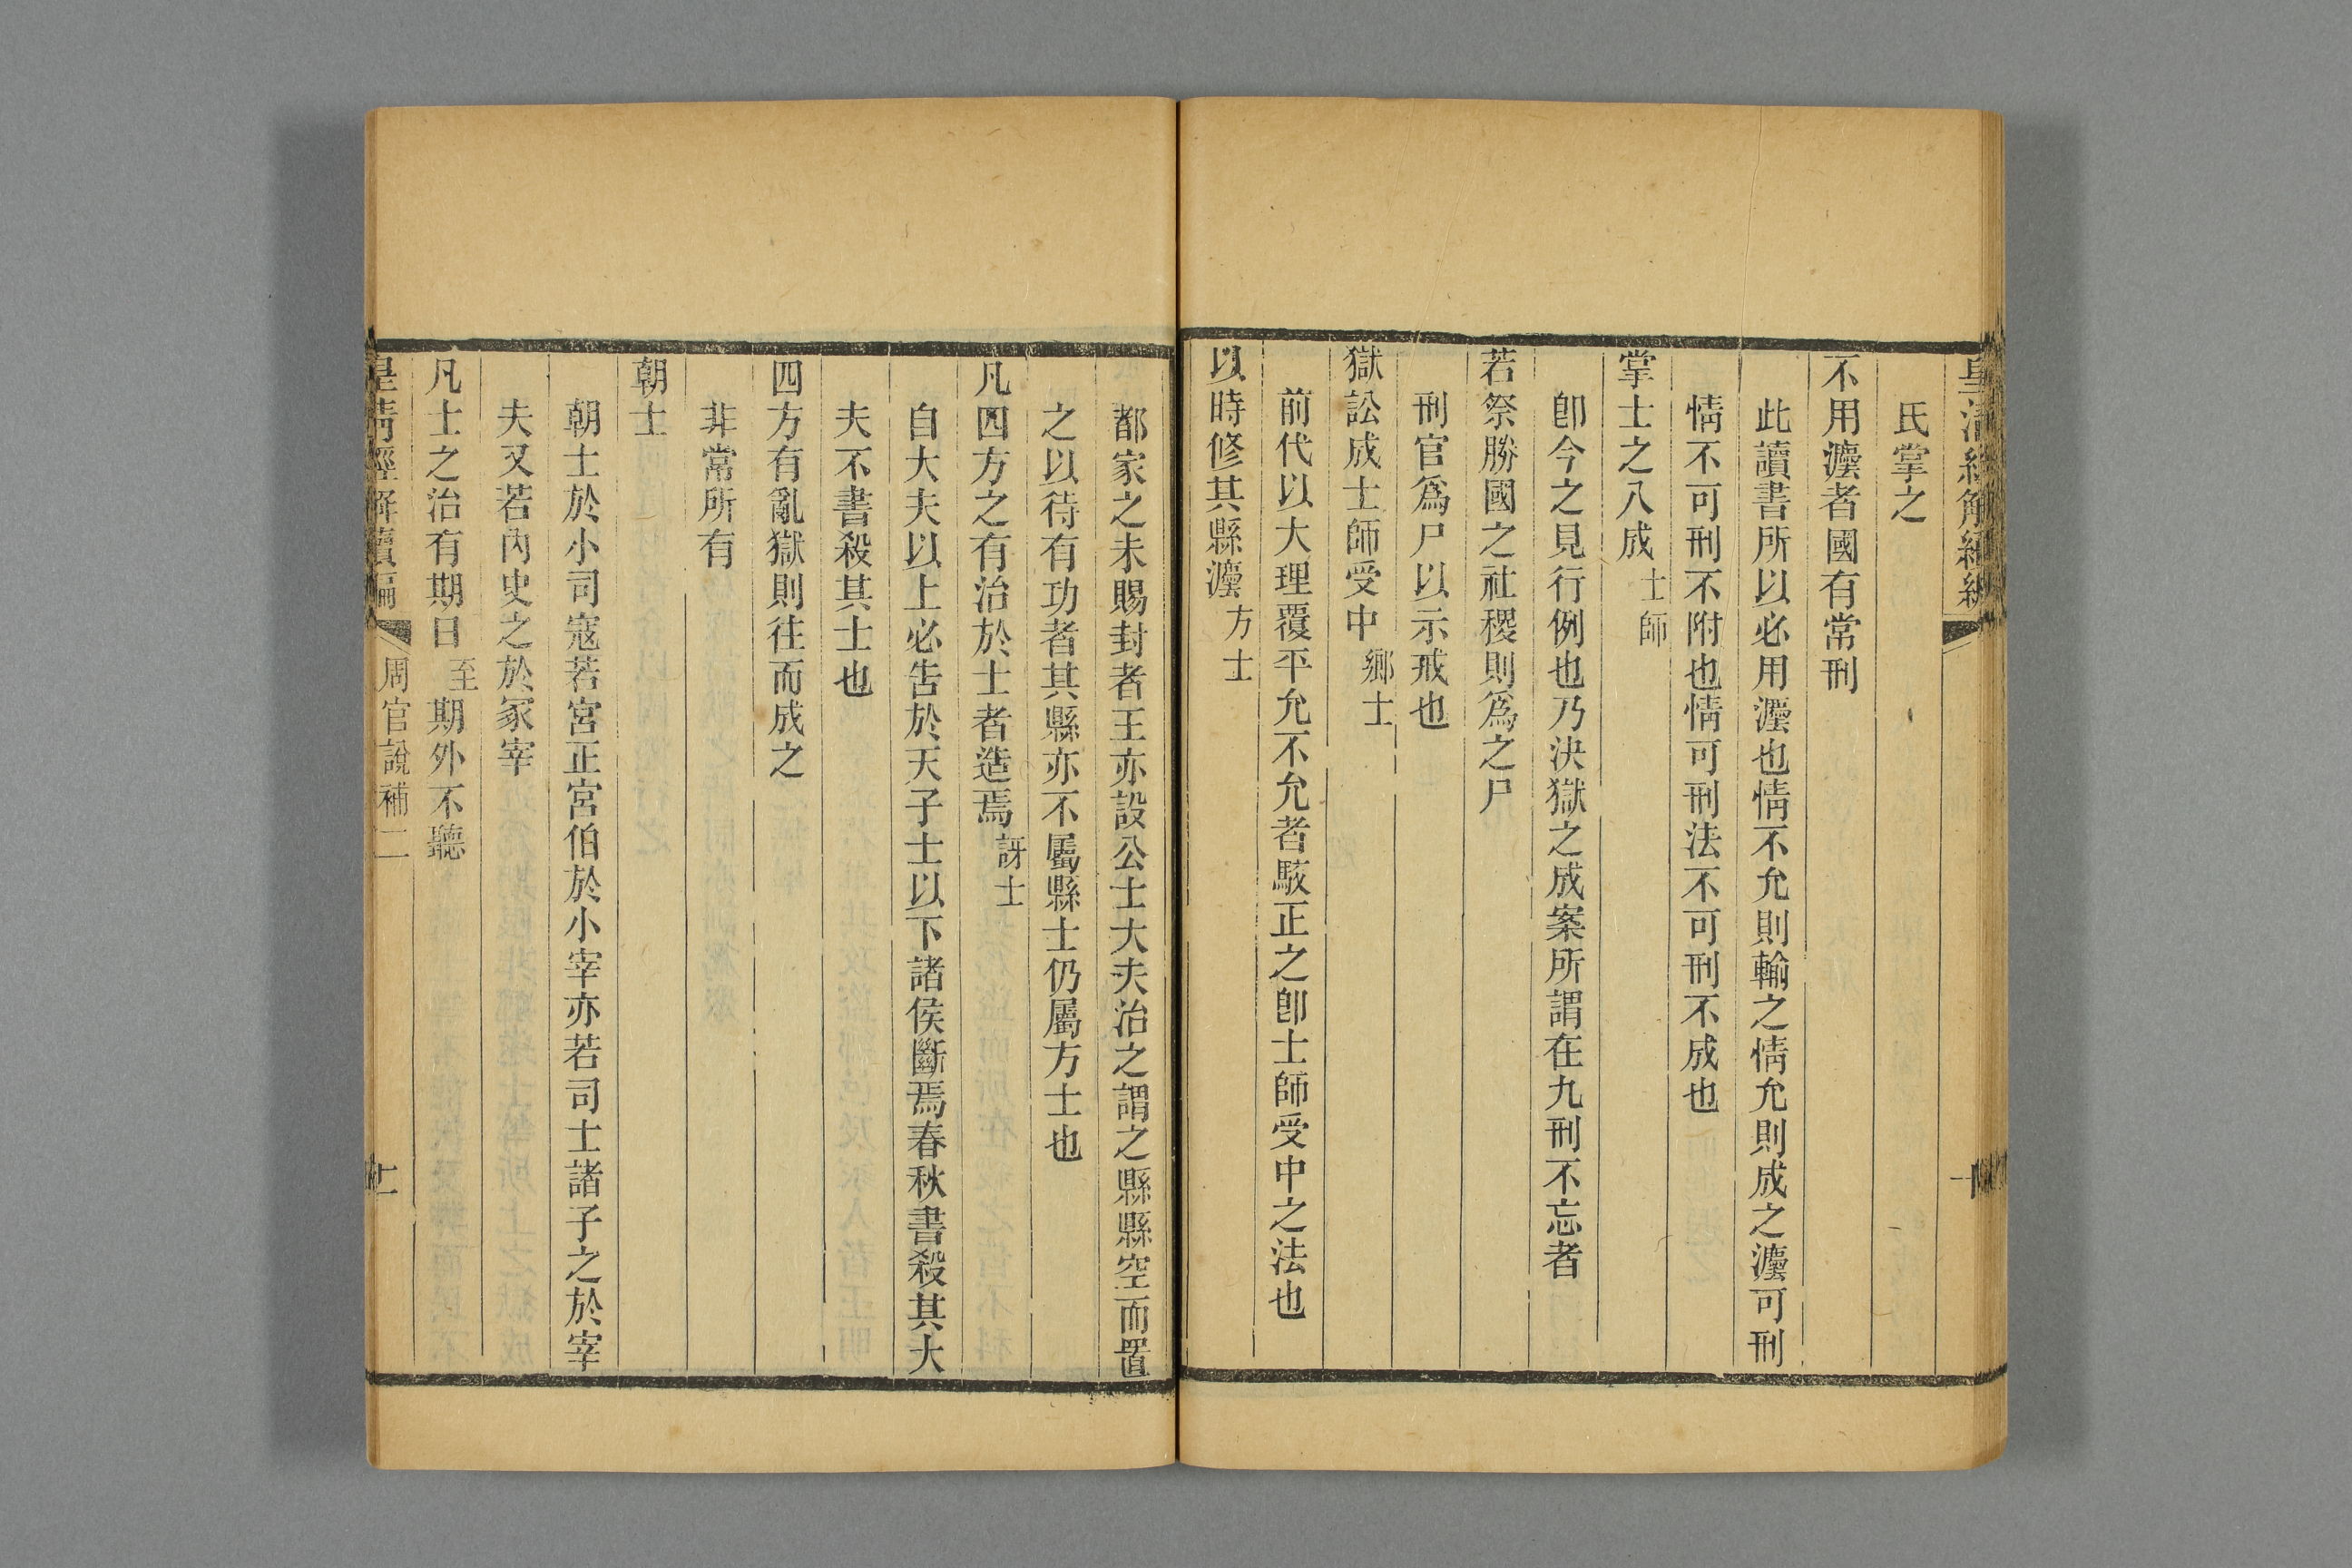 皇清經解續編
氏掌之
不用灋者國有常刑
此讀書所以必用灋也情不允則輸之情允則成之灋可刑
情不可刑不附也情可刑法不可刑不成也
掌士之八成士師
卽今之見行例也乃決獄之成案所謂在九刑不忘者
若祭勝國之社稷則爲之尸
刑官爲尸以示戒也
獄訟成士師受中鄉士
前代以大理覆平允不允者駁正之卽士師受中之法也
以時修其縣灋方士
都家之未賜封者王亦設公士大夫治之謂之縣縣空而置
之以待有功者其縣亦不屬縣士仍屬方士也
凡四方之有治於士者造焉訝士
自大夫以上必告於天子士以下諸侯斷焉春秋書殺其大
夫不書殺其士也
四方有亂獄則往而成之
非常所有
朝士
朝士於小司寇若宮正宮伯於小宰亦若司士諸子之於宰
夫又若內史之於冢宰
凡士之治有期日至期外不聽
皇清經解續編 周官說補二